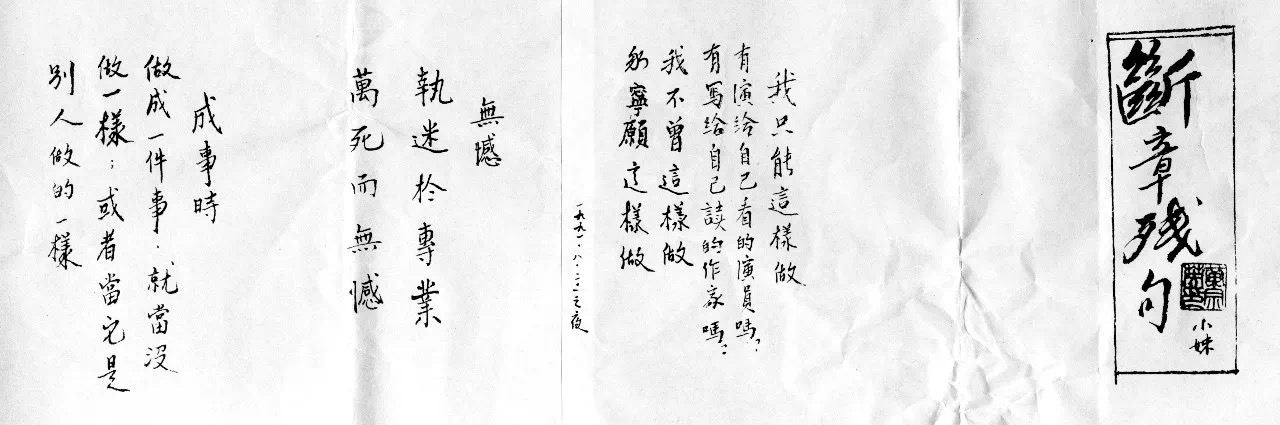 斷章殘句
小妹
我只能這樣做
有演給自己看的演員嗎？
有寫給自己讀的作家嗎？
我不曾這樣做
寧願這樣做
一九九一·八·二二之夜
無憾
執迷於專業
萬死而無憾
成事時
做成一件事，就當沒
做一樣；或者當它是
別人做的一樣